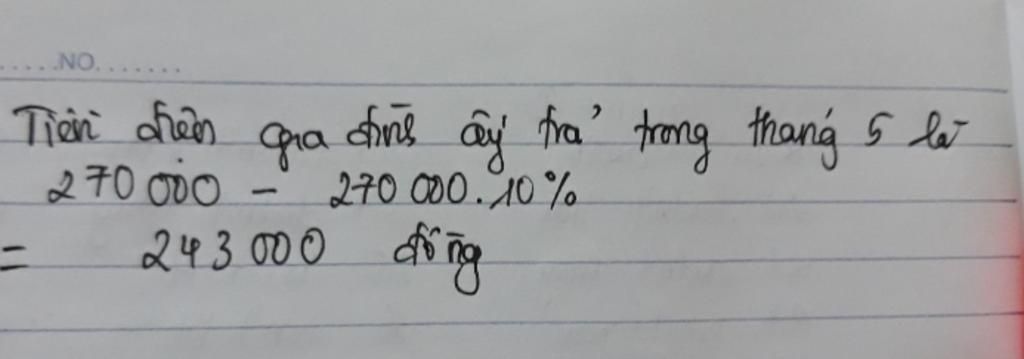 .....NO.......
Tiền điện gia đình ấy trả trong tháng 5 là
270 000 - 270 000.10%
= 243 000 đồng